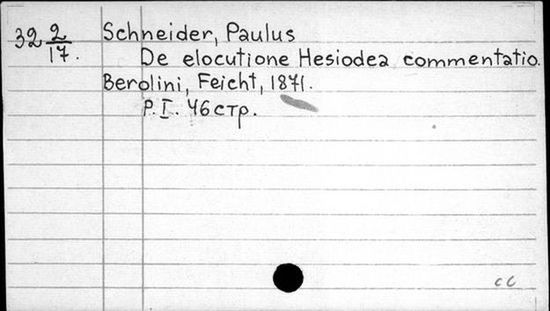 32 2/17.
Schneider, Paulus
De elocutione Hesiodea commentatio.
Berolini, Feicht, 1871.
P.I. 46 стр.
cc